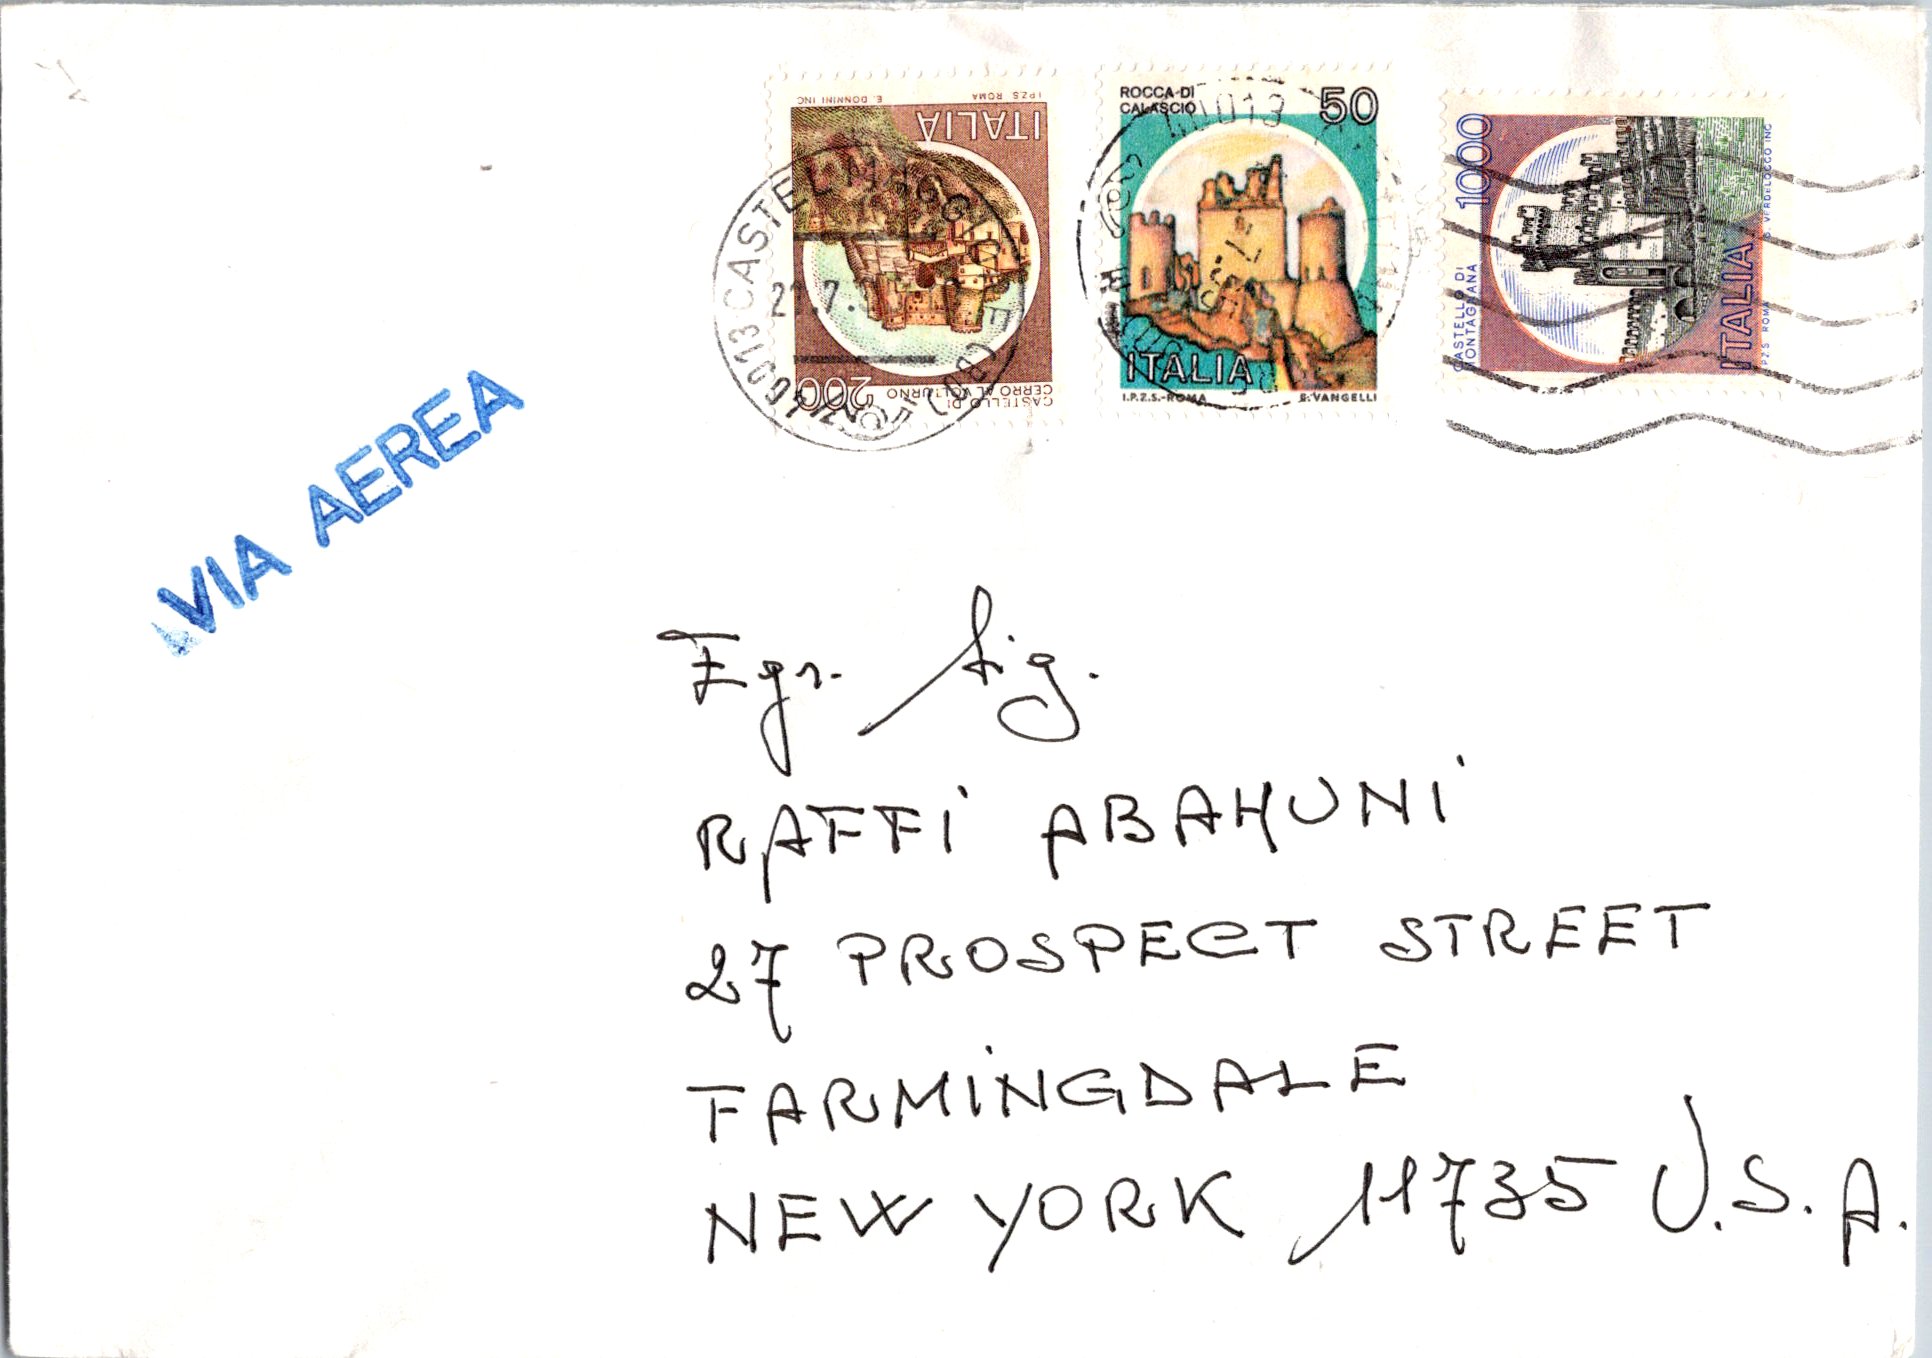 I.P.Z.S. ROMA E. DONNINI INC.
ITALIA
200
CASTELLO DI
CERRO AL VOLTURNO
40013 CASTEL MAGGIORE
ROCCA DI
CALASCIO
50
ITALIA
I.P.Z.S.-ROMA E. VANGELLI
40013
1000
CASTELLO DI
MONTAGNANA
ITALIA
I.P.Z.S. ROMA G. VERDELOCCO INC.
VIA AEREA
Egr. Sig.
RAFFI ABAHUNI
27 PROSPECT STREET
FARMINGDALE
NEW YORK 11735 U.S.A.